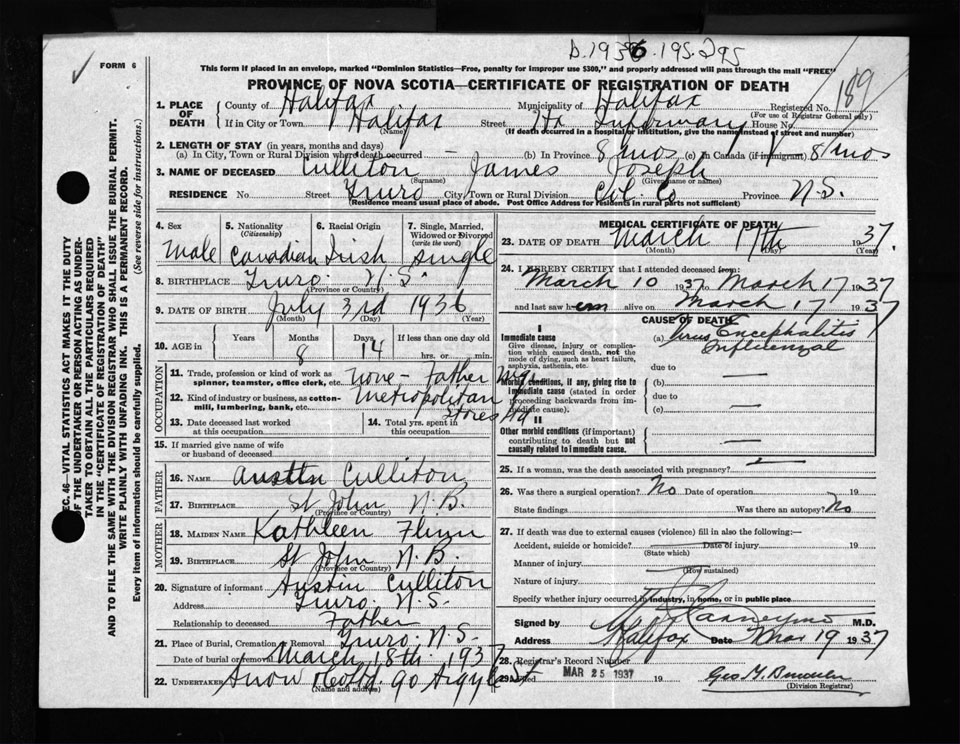 D. 1936. 195-295
✓ FORM 6
This form if placed in an envelope, marked "Dominion Statistics—Free, penalty for improper use $300," and properly addressed will pass through the mail "FREE"
PROVINCE OF NOVA SCOTIA—CERTIFICATE OF REGISTRATION OF DEATH
189
1. PLACE OF DEATH County of Halifax Municipality of Halifax Registered No.
(For use of Registrar General only)
If in City or Town Halifax Street Hx Infirmary House No.
(Name) (If death occurred in a hospital or institution, give the name instead of street and number)
2. LENGTH OF STAY (in years, months and days)
(a) In City, Town or Rural Division where death occurred — (b) In Province 8 mos (c) In Canada (if immigrant) 8 mos
3. NAME OF DECEASED Culliton James Joseph
(Surname) (Given name or names)
RESIDENCE No. Street Truro City, Town or Rural Division Col. Co Province N.S.
(Residence means usual place of abode. Post Office Address for residents in rural parts not sufficient)
4. Sex 5. Nationality (Citizenship) 6. Racial Origin 7. Single, Married, Widowed or Divorced (write the word)
Male Canadian Irish single
8. BIRTHPLACE Truro. N.S.
(Province or Country)
9. DATE OF BIRTH July 3rd 1936
(Month) (Day) (Year)
10. AGE in Years Months Days If less than one day old
8 14 hrs. or min.
OCCUPATION
11. Trade, profession or kind of work as spinner, teamster, office clerk, etc. None - Father Mgr.
12. Kind of industry or business, as cotton-mill, lumbering, bank, etc. Metropolitan Stores Ltd
13. Date deceased last worked at this occupation
14. Total yrs. spent in this occupation
15. If married give name of wife or husband of deceased
FATHER
16. NAME Austin Culliton
17. BIRTHPLACE St John N.B.
(Province or Country)
MOTHER
18. MAIDEN NAME Kathleen Flinn
19. BIRTHPLACE St John N.B.
(Province or Country)
20. Signature of informant Austin Culliton
Address Truro. N.S-
Relationship to deceased Father
21. Place of Burial, Cremation or Removal Truro. N.S-
Date of burial or removal March 18th. 1937
22. UNDERTAKER Snow & Co Ltd. 90 Argyle St
(Name and address)
MEDICAL CERTIFICATE OF DEATH
23. DATE OF DEATH March 17th 1937.
(Month) (Day) (Year)
24. I HEREBY CERTIFY that I attended deceased from:
March 10 1937 to March 17 1937
and last saw him alive on March 17 1937
CAUSE OF DEATH
I
Immediate cause
Give disease, injury or complication which caused death, not the mode of dying, such as heart failure, asphyxia, asthenia, etc.
(a) Virus Encephalitis
Influenzal
due to
Morbid conditions, if any, giving rise to immediate cause (stated in order proceeding backwards from immediate cause).
(b) —
due to
(c) —
II
Other morbid conditions (if important) contributing to death but not causally related to immediate cause.
25. If a woman, was the death associated with pregnancy? —
26. Was there a surgical operation? No Date of operation 19
State findings Was there an autopsy? No
27. If death was due to external causes (violence) fill in also the following:—
Accident, suicide or homicide? Date of injury 19
(State which)
Manner of injury
(How sustained)
Nature of injury
Specify whether injury occurred in industry, in home, or in public place
Signed by M.D.
Address Halifax Date Mar 19 1937
28. Registrar's Record Number
29. Filed MAR 25 1937 19
(Division Registrar)
SEC. 46—VITAL STATISTICS ACT MAKES IT THE DUTY OF THE UNDERTAKER OR PERSON ACTING AS UNDERTAKER TO OBTAIN ALL THE PARTICULARS REQUIRED IN THE "CERTIFICATE OF REGISTRATION OF DEATH" AND TO FILE THE SAME WITH THE DIVISION REGISTRAR WHO SHALL ISSUE THE BURIAL PERMIT.
WRITE PLAINLY WITH UNFADING INK. THIS IS A PERMANENT RECORD.
Every item of information should be carefully supplied. (See reverse side for instructions.)